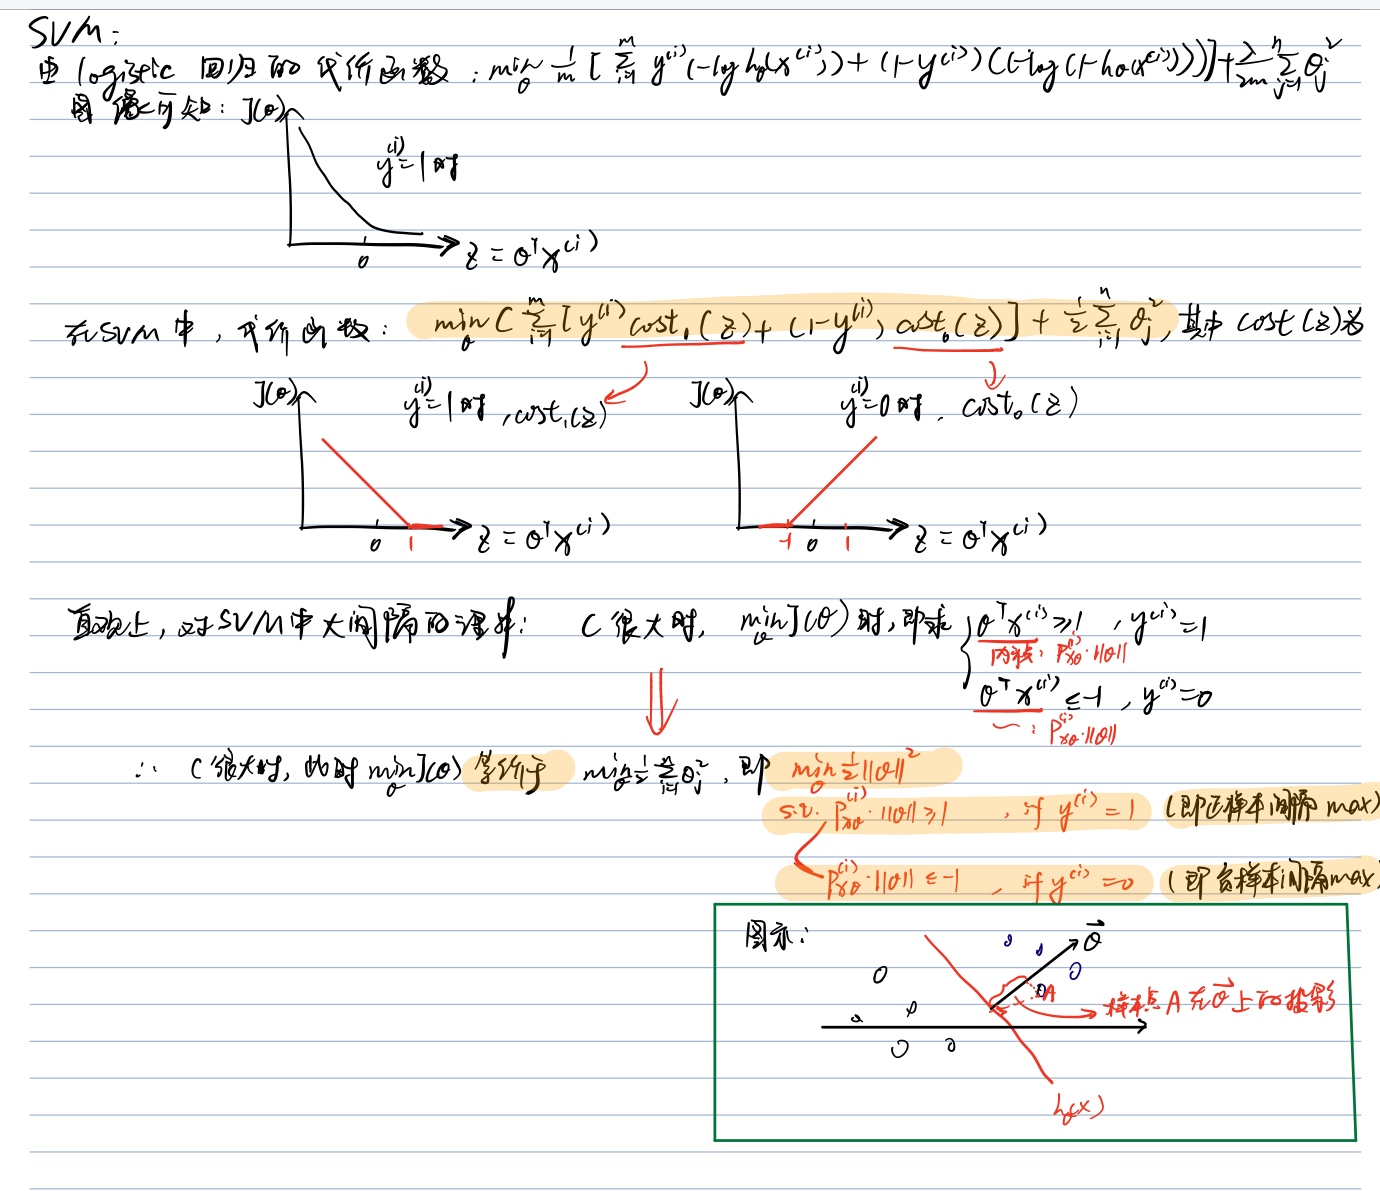 SVM:
由 logistic 回归的代价函数: min_θ 1/m [ Σ_{i=1}^{m} y^(i)(-log h_θ(x^(i))) + (1-y^(i))((-log(1-h_θ(x^(i))))] + λ/2m Σ_{j=1}^{n} θ_j^2
图像可知: J(θ)
y^(i)=1时
0
z = θ^T x^(i)
在SVM中, 代价函数: min_θ C Σ_{i=1}^{m} [ y^(i) cost_1(z) + (1-y^(i)) cost_0(z) ] + 1/2 Σ_{i=1}^{n} θ_j^2, 其中 cost(z)为
J(θ) y^(i)=1时, cost_1(z) J(θ) y^(i)=0时, cost_0(z)
0 1 z = θ^T x^(i) -1 0 1 z = θ^T x^(i)
直观上, 对SVM中大间隔的理解: C很大时, min_θ J(θ)时, 即求 { θ^T x^(i) ≥ 1, y^(i)=1
内积: P_xθ^(i)·||θ||
θ^T x^(i) ≤ -1, y^(i)=0
~: P_xθ^(i)·||θ||
∴ C很大时, 此时 min_θ J(θ) 等价于 min_θ 1/2 Σ_{i=1}^{n} θ_j^2, 即 min_θ 1/2 ||θ||^2
s.t. P_xθ^(i)·||θ|| ≥ 1, if y^(i)=1 (即正样本间隔max)
P_xθ^(i)·||θ|| ≤ -1, if y^(i)=0 (即负样本间隔max)
图示:
θ
A
样本点A在θ上的投影
h_θ(x)